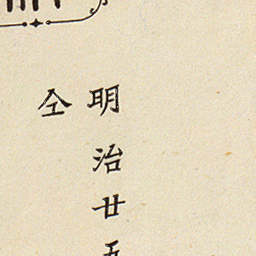 明治廿五
仝